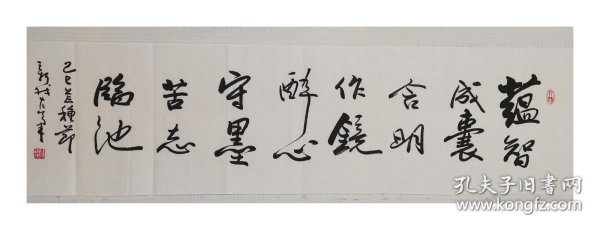 蕴智
成囊
含明
作镜
醉心
守墨
苦志
临池
己巳芒种节
孔夫子旧书网
www.kongfz.com